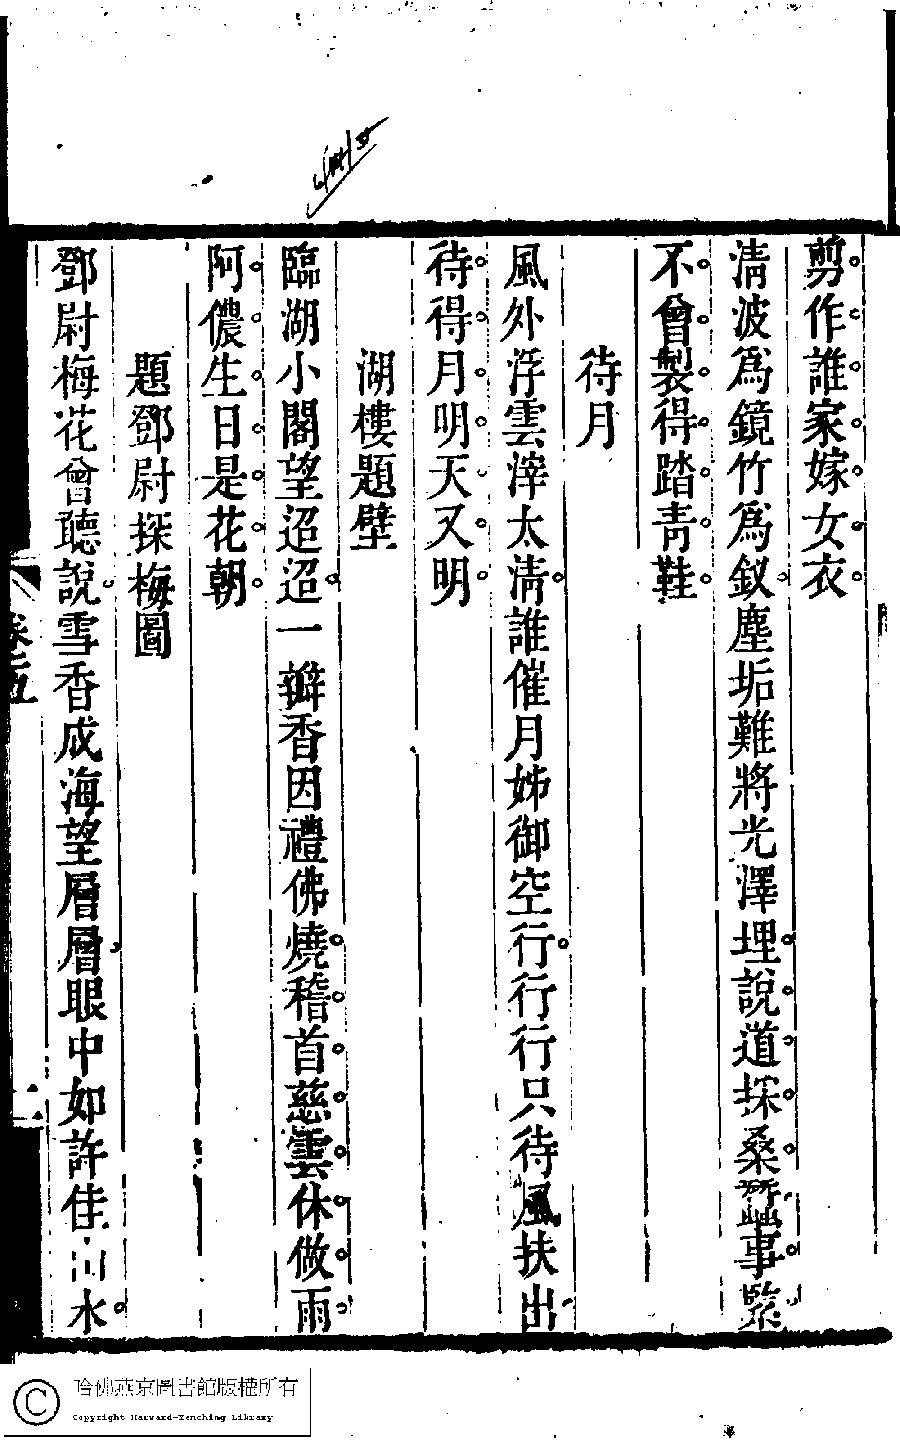 剪作誰家嫁女衣
清波爲鏡竹爲釵塵垢難將光澤埋說道採桑蠶事緊
不曾製得踏青鞋
待月
風外浮雲滓太清誰催月姊御空行行行只待風扶出
待得月明天又明
湖樓題壁
臨湖小閣望迢迢一瓣香因禮佛燒稽首慈雲休做雨
阿儂生日是花朝
題鄧尉探梅圖
鄧尉梅花曾聽說雪香成海望層層眼中如許佳水
二
哈佛燕京圖書館版權所有
Copyright Harvard-Yenching Library